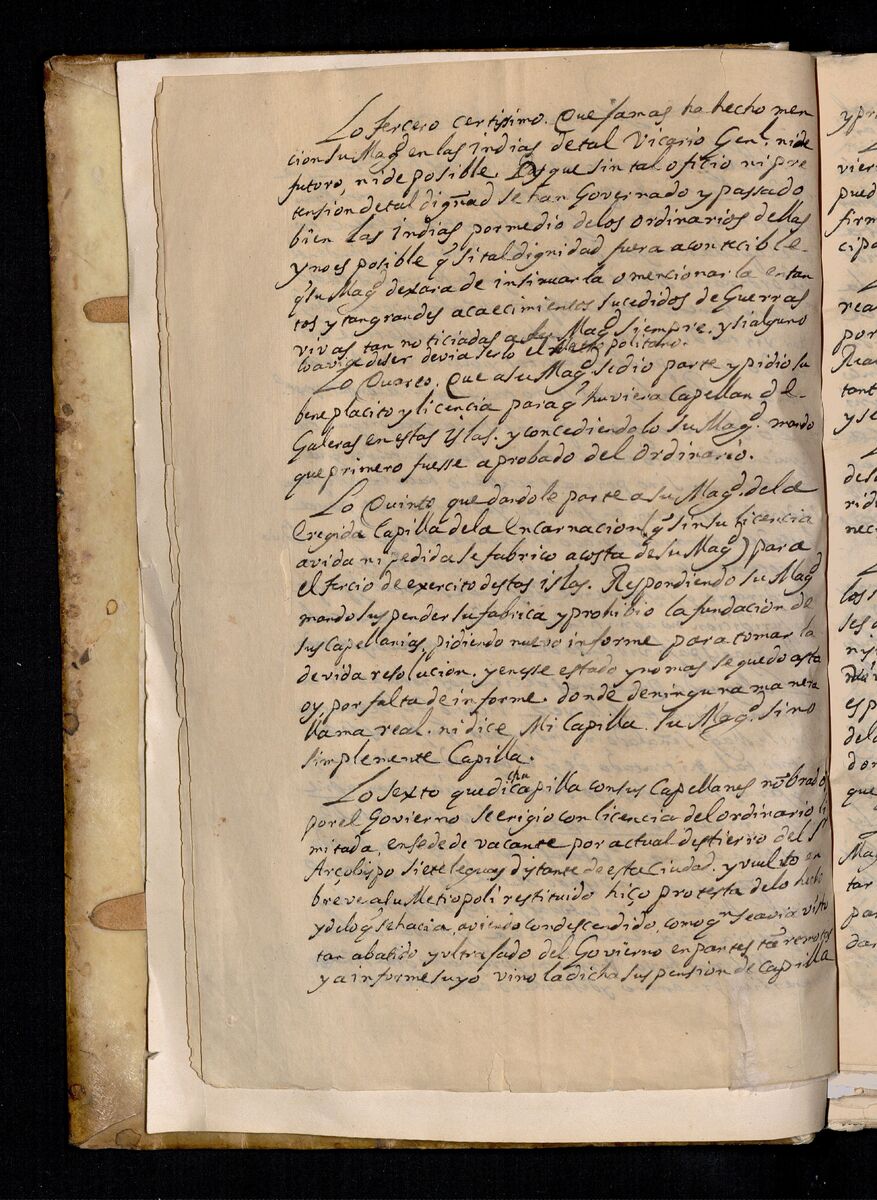 Lo tercero certissimo. Que jamas ha hecho men
cion su Mag.d en las indias de tal Vicario Gen.l ni de
futuro, ni de posible. Pues que sin tal oficio ni pre
tension de tal dign.ad se han Governado y passado
bien las indias por medio de los ordinarios dellas
y no es posible q̃ si tal dignidad fuera acontecible
q̃ su Mag.d dexara de insinuarla o mencionarla en tan
tos y tan grandes acaecimientos sucedidos de Guerras
vivas tan noticiadas a su Mag.d siempre. y si alguno
lo avia de ser devia serlo el Metropolitano.
Lo Quarto. Que a su Mag.d se dio parte y pidio su
beneplacito y licencia para q̃ huviera Capellan de
Galeras en estas islas. y concediendolo su Mag.d mando
que primero fuesse aprobado del Ordinario.
Lo Quinto que dandole parte a su Mag.d de la
eregida Capilla de la Encarnacion (q̃ sin su licencia
avida ni pedida se fabrico a costa de su Mag.d) para
el tercio de exercito destas islas. Respondiendo su Mag.d
mando suspender su fabrica y prohibio la fundacion de
sus Capellanias, pidiendo nuevo informe para tomar la
devida resolucion. y en esse estado y no mas se quedo asta
oy, por falta de informe. donde de ninguna manera
llama real. ni dice Mi Capilla. su Mag.d sino
simplemente Capilla.
Lo sexto que dicha Capilla con sus Capellanes nõbrados
por el Govierno se erigio con licencia del ordinario li
mitada, en sede vacante por actual destierro del S.r
Arçobispo siete leguas distante de esta Ciudad. y vuelto en
breve a su Metropoli restituido hiço protesta de lo hecho
y de lo q̃ se hacia, aviendo condescendido, como q.n se avia visto
tan abatido y ultrajado del Govierno en partes tã remotas
y a informe suyo vino la dicha suspension de Capilla